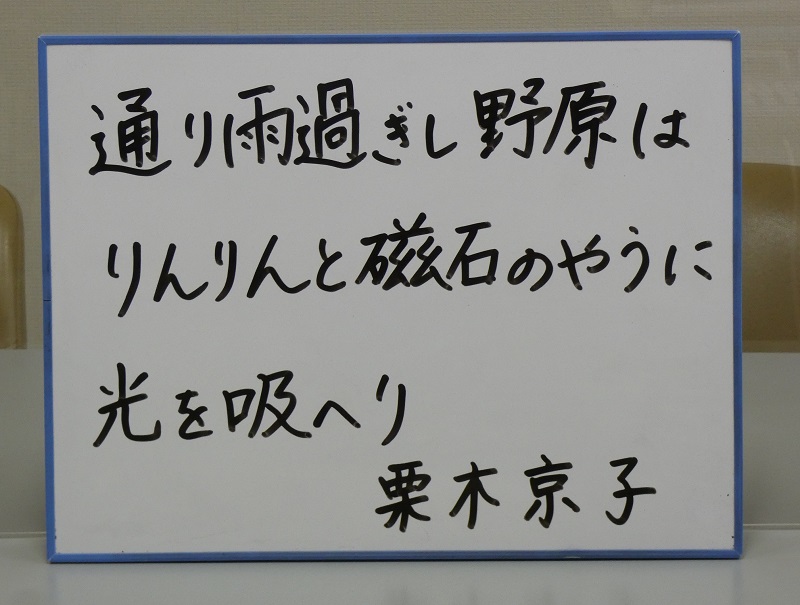 通り雨過ぎし野原は
りんりんと磁石のやうに
光を吸へり
栗木京子